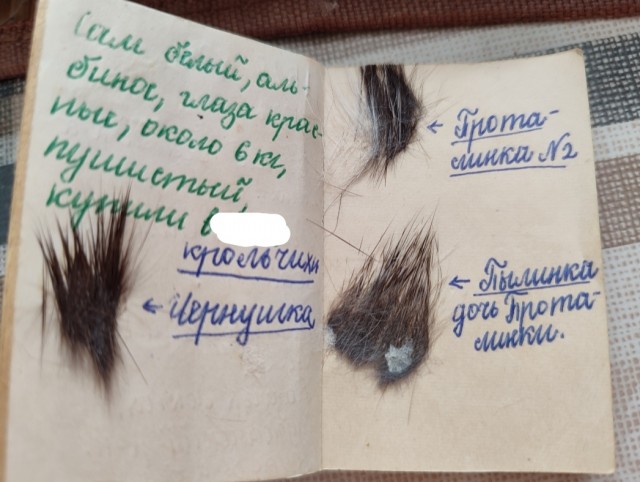 Сам белый, аль-
бинос, глаза крас-
ные, около 6 кг,
пушистый,
купили в
крольчихи
← Чернушка
← Прота-
линка №2
← Пылинка
дочь Прота-
линки.